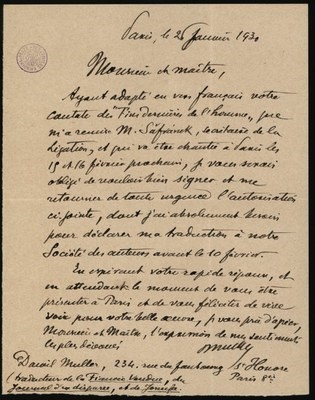 Paris, le 25 Janvier 1930
Monsieur et maître,
Ayant adapté en vers français votre
cantate des "Fins dernières de l'homme", que
m'a remise M. Šafránek, secrétaire de la
Légation, et qui va être chantée à Paris les
15 et 16 février prochains, je vous serais
obligé de vouloir bien signer et me
retourner de toute urgence l'autorisation
ci-jointe, dont j'ai absolument besoin
pour déclarer ma traduction à notre
Société des auteurs avant le 10 février.
En espérant votre rapide réponse, et
en attendant le moment de vous être
présenté à Paris et de vous féliciter de vive
voix pour votre belle œuvre, je vous prie d'agréer,
Monsieur et Maître, l'expression de mes sentiments
les plus dévoués
Daniel Muller, 234, rue du faubourg St Honoré
Paris 8e
(traducteur de la Fiancée vendue, du
Journal d'un disparu, et de